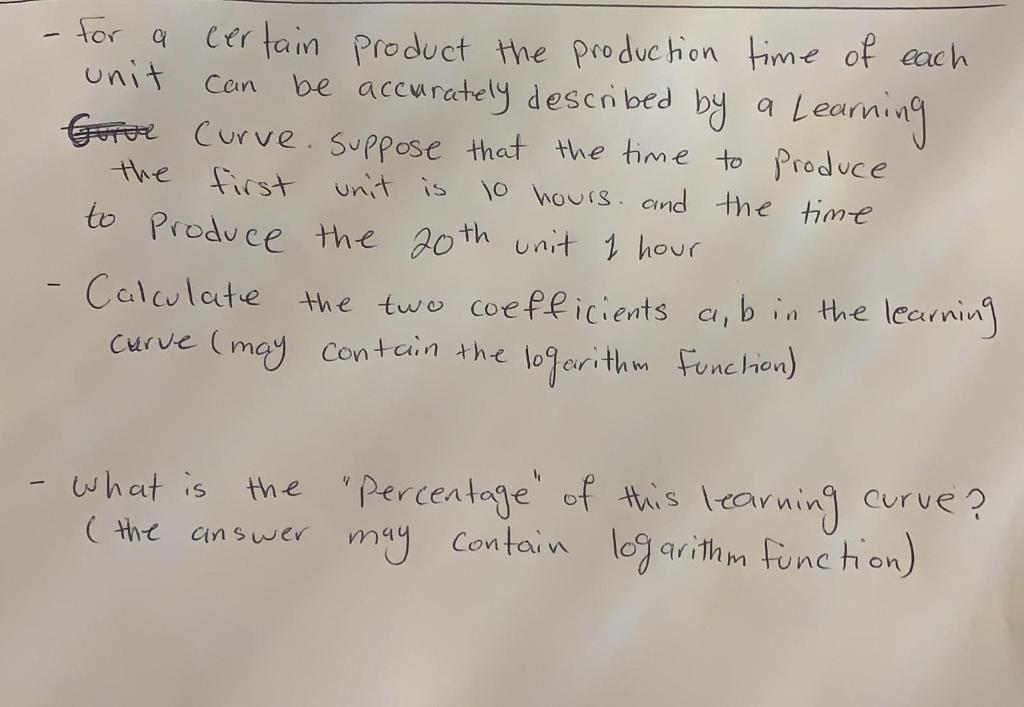 - For a certain product the production time of each
unit can be accurately described by a Learning
Curve. Suppose that the time to produce
the first unit is 10 hours. and the time
to produce the 20th unit 1 hour
- Calculate the two coefficients a, b in the learning
curve (may contain the logarithm function)
- what is the "Percentage" of this learning curve?
(the answer may contain logarithm function)